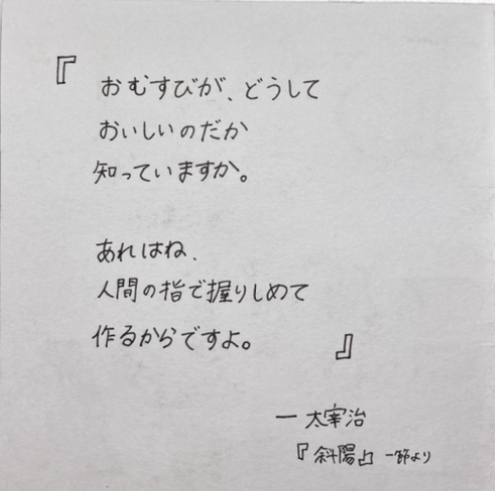 『
おむすびが、どうして
おいしいのだか
知っていますか。
あれはね、
人間の指で握りしめて
作るからですよ。
』
— 太宰治
『斜陽』一節より